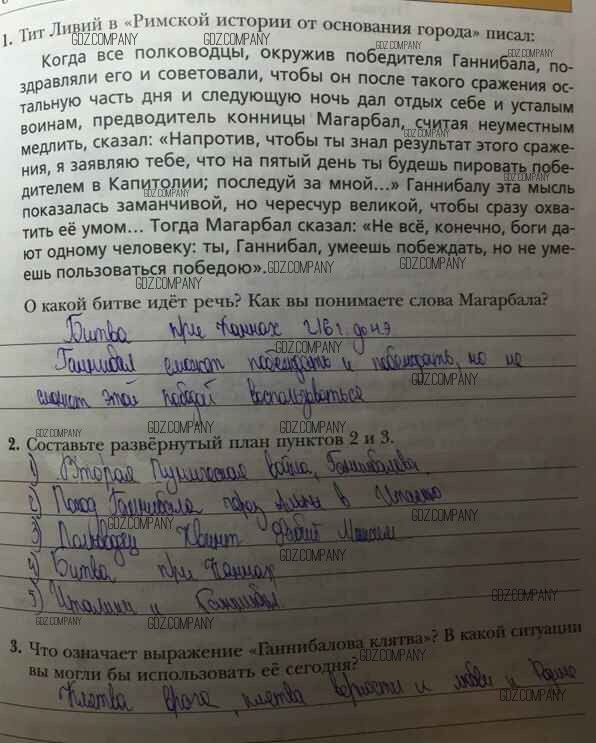 1. Тит Ливий в «Римской истории от основания города» писал:
Когда все полководцы, окружив победителя Ганнибала, по-
здравляли его и советовали, чтобы он после такого сражения ос-
тальную часть дня и следующую ночь дал отдых себе и усталым
воинам, предводитель конницы Магарбал, считая неуместным
медлить, сказал: «Напротив, чтобы ты знал результат этого сраже-
ния, я заявляю тебе, что на пятый день ты будешь пировать побе-
дителем в Капитолии; последуй за мной...» Ганнибалу эта мысль
показалась заманчивой, но чересчур великой, чтобы сразу охва-
тить её умом... Тогда Магарбал сказал: «Не всё, конечно, боги да-
ют одному человеку: ты, Ганнибал, умеешь побеждать, но не уме-
ешь пользоваться победою».
О какой битве идёт речь? Как вы понимаете слова Магарбала?
Битва при Каннах 216 г. до н э
Ганнибал сможет побеждать и побеждать, но не
сможет этой победой воспользоваться
2. Составьте развёрнутый план пунктов 2 и 3.
1) Вторая Пуническая война, Ганнибалова.
2) Поход Ганнибала через Альпы в Италию
3) Полководец Квинт Фабий Максим
4) Битва при Каннах
5) Италики и Ганнибал.
3. Что означает выражение «Ганнибалова клятва»? В какой ситуации
вы могли бы использовать её сегодня?
Клятва врага, клятва верности и любви к Родине
GDZ.COMPANY